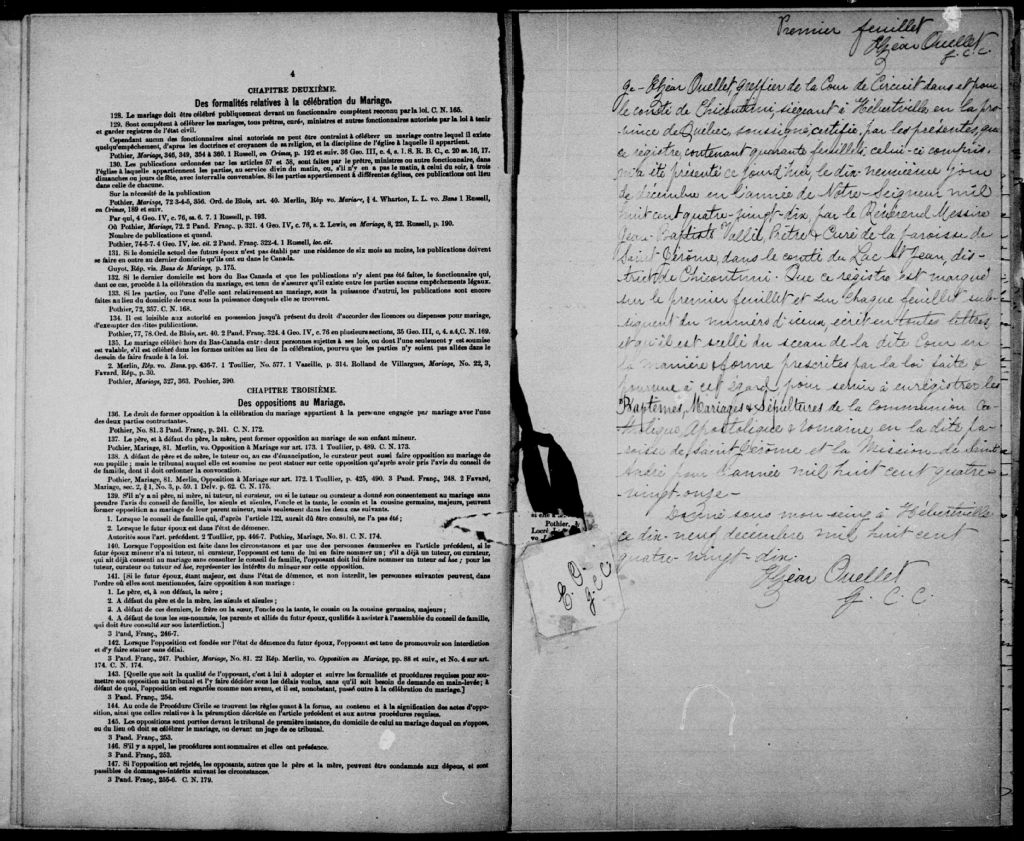 4
CHAPITRE DEUXIÈME.
Des formalités relatives à la célébration du Mariage.
128. Le mariage doit être célébré publiquement devant un fonctionnaire compétent reconnu par la loi. C. N. 165.
129. Sont compétent à célébrer les mariages, tous prêtres, curé, ministres et autres fonctionnaires autorisés par la loi à tenir
et garder registres de l'état civil.
Cependant aucun des fonctionnaires ainsi autorisés ne peut être contraint à célébrer un mariage contre lequel il existe
quelqu'empêchement, d'après les doctrines et croyances de sa religion, et la discipline de l'église à laquelle il appartient.
Pothier, Mariage, 346, 349, 354 à 360. 1 Russell, on Crimes, p. 192 et suiv. 36 Geo. III, c. 4, s. 1. S. R. B. C., c. 20 ss. 16, 17.
130. Les publications ordonnées par les articles 57 et 58, sont faites par le prêtre, ministre ou autre fonctionnaire, dans
l'église à laquelle appartiennent les parties, au service divin du matin, ou, s'il n'y en a pas le matin, à celui du soir, à trois
dimanches ou jours de fête, avec intervalle convenables. Si les parties appartiennent à différentes églises, ces publications ont lieu
dans celle de chacune.
Sur la nécessité de la publication
Pothier, Mariage, 72 3-4-5, 356. Ord. de Blois, art. 40. Merlin, Rép vo. Mariare, § 4. Wharton, L. L. vo. Bans 1 Russell,
on Crimes, 189 et suiv.
Par qui, 4 Geo. IV, c. 76, ss. 6. 7. 1 Russell, p. 193.
Où Pothier, Mariage, 72. 2 Pand. Franç., p. 321. 4 Geo. IV, c. 76, s. 2. Lewis, on Mariage, 8, 22. Russell, p. 190.
Nombre de publications et quand.
Pothier, 74-5-7. 4 Geo. IV, loc. cit. 2 Pand. Franç. 322-4. 1 Russell, loc. cit.
131. Si le domicile actuel des futurs époux n'est pas établi par une résidence de six mois au moins, les publications doivent
se faire en outre au dernier domicile qu'ils ont eu dans le Canada.
Guyot, Rép. vis. Bans de Mariage, p. 175.
132. Si le dernier domicile est hors du Bas Canada et que les publications n'y aient pas été faites, le fonctionnaire qui,
dans ce cas, procède à la célébration du mariage, est tenu de s'assurer qu'il existe entre les parties aucune empêchements légaux.
133. Si les parties, ou l'une d'elle sont relativement au mariage, sous la puissance d'autrui, les publications sont encore
faites au lieu du domicile de ceux sous la puissance desquels elle se trouvent.
Pothier, 72, 357. C. N. 168.
134. Il est loisible aux autorité en possession jusqu'à présent du droit d'accorder des licences ou dispenses pour mariage,
d'exempter des dites publications.
Pothier, 77, 78. Ord. de Blois, art. 40. 2 Pand. Franç. 324. 4 Geo. IV, c. 76 en plusieurs sections, 35 Geo. III, c. 4. s. 4, C. N. 169.
135. Le mariage célébré hors du Bas-Canada entre deux personnes sujettes à ses lois, ou dont l'une seulement y est soumise
est valable, s'il est célébré dans les formes usitées au lieu de la célébration, pourvu que les parties n'y soient pas allées dans le
dessein de faire fraude à la loi.
2. Merlin, Rép. vo. Bans. pp. 436-7. 1 Toullier, No. 577. 1 Vazeille, p. 314. Rolland de Villargues, Mariage, No. 22, 3,
Favard, Rép., p. 30.
Pothier, Mariage, 327, 363. Pouhier, 390.
CHAPITRE TROISIÈME.
Des oppositions au Mariage.
136. Le droit de former opposition à la célébration du mariage appartient à la personne engagée par mariage avec l'une
des deux parties contractantes.
Pothier, No. 81. 3 Pand. Franç., p. 241. C. N. 172.
137. Le père, et à défaut du père, la mère, peut former opposition au mariage de son enfant mineur.
Pothier, Mariage, 81. Merlin, vo. Opposition à Mariage sur art. 173. 1 Toullier, p. 489. C. N. 173.
138. A défaut de père et de mère, le tuteur ou, au cas d'émancipation, le curateur peut aussi faire opposition au mariage de
son pupille; mais le tribunal auquel elle est soumise ne peut statuer sur cette opposition qu'après avoir pris l'avis du conseil de
famille, dont il doit ordonner la convocation.
Pothier, Mariage, 81. Merlin, Opposition à Mariage sur art. 172. 1 Toullier, p. 425, 490. 3 Pand. Franç., 248. 2 Favard,
Mariage, sec. 2, § 1, No. 3, p. 59. 1 Delv. p. 62. C. N. 175.
139. S'il n'y a ni père, ni mère, ni tuteur, ni curateur, ou si le tuteur ou curateur a donné son consentement au mariage sans
prendre l'avis du conseil de famille, les aïeuls et aïeules, l'oncle et la tante, le cousin et la cousine germains, majeurs, peuvent
former opposition au mariage de leur parent mineur, mais seulement dans les deux cas suivants.
1. Lorsque le conseil de famille qui, d'après l'article 122, aurait dû être consulté, ne l'a pas été;
2. Lorsque le futur époux est dans l'état de démence.
Autorités sous l'art. précédent. 2 Toullier, pp. 446-7. Pothier, Mariage, No. 81. C. N. 174.
140. Lorsque l'opposition est faite dans les circonstances et par une des personnes énumérées en l'article précédent, si le
futur époux mineur n'a ni tuteur, ni curateur, l'opposant est tenu de lui en faire nommer un; s'il a déjà un tuteur, ou curateur,
qui ait déjà consenti au mariage sans consulter le conseil de famille, l'opposant doit lui faire nommer un tuteur ad hoc; pour les
tuteur, curateur ou tuteur ad hoc, représenter les intérêts du mineur sur cette opposition.
141. [Si le futur époux, étant majeur, est dans l'état de démence, et non interdit, les personnes suivantes peuvent, dans
l'ordre où elles sont mentionnées, faire opposition à son mariage:
1. Le père, et, à son défaut, la mère;
2. A défaut du père et de la mère, les aïeuls et aïeules;
3. A défaut de ces derniers, le frère ou la sœur, l'oncle ou la tante, le cousin ou la cousine germains, majeurs;
4. A défaut de tous les sus-nommés, les parents et alliés du futur époux, qualifiés à assister à l'assemblée du conseil de famille,
qui doit être consulté sur son interdiction.]
3 Pand. Franç., 246-7.
142. Lorsque l'opposition est fondée sur l'état de démence du futur époux, l'opposant est tenu de promouvoir son interdiction
et d'y faire statuer sans délai.
3 Pand. Franç., 247. Pothier, Mariage, No. 81. 22 Rép. Merlin, vo. Opposition au Mariage, pp. 88 et suiv., et No. 4 sur art.
174. C. N. 174.
143. [Quelque soit la qualité de l'opposant, c'est à lui à adopter et suivre les formalités et procédures requises pour sou-
mettre son opposition au tribunal et l'y faire décider sous les délais voulus, sans qu'il soit besoin de demande en main-levée; à
défaut de quoi, l'opposition est regardée comme non avenu, et il est, nonobstant, passé outre à la célébration du mariage.]
3 Pand. Franç., 254.
144. Au code de Procédure Civile se trouvent les règles quant à la forme, au contenu et à la signification des actes d'oppo-
sition, ainsi que celles relatives à la péremption décrétée en l'article précédent et aux autres procédures requises.
145. Les oppositions sont portées devant le tribunal de première instance, du domicile de celui au mariage duquel on s'oppose,
ou du lieu où doit se célébrer le mariage, ou devant un juge de ce tribunal.
3 Pand. Franç., 253.
146. S'il y a appel, les procédures sont sommaires et elles ont préséance.
3 Pand. Franç., 253.
147. Si l'opposition est rejetée, les opposants, autres que le père et la mère, peuvent être condamnés aux dépens, et sont
passibles de dommages-intérêts suivant les circonstances.
3 Pand. Franç., 255-6. C. N. 179.
Pothier,
Locré
E. O.
g. C C
Premier feuillet
Elzéar Ouellet
g. C. C.
Je Elzéar Ouellet, greffier de la Cour de Circuit dans et pour
le comté de Chicoutimi, siégeant à Hébertville en la pro-
vince de Québec, soussigné, certifie, par les présentes, que
ce régistre, contenant quarante feuillets, celui-ci compris,
m'a été présenté ce jourd'hui, le dix-neuvième jour
de décembre en l'année de Notre-Seigneur mil
huit cent quatre-vingt-dix, par le Révérend Messire
Jean-Baptiste Vallée, Prêtre & Curé de la paroisse de
Saint-Jérôme, dans le comté du Lac St Jean, dis-
trict de Chicoutimi. Que ce régistre est marqué
sur le premier feuillet et sur chaque feuillet sub-
séquent du numéro d'iceux, écrit en toutes lettres,
et qu'il est scellé du sceau de la dite Cour en
la manière & forme prescrites par la loi faite &
pourvue à cet égard, pour servir à enrégistrer les
Baptêmes, Mariages & Sépultures de la Communion Ca-
tholique, Apostolique & Romaine en la dite pa-
roisse de Saint-Jérôme et la Mission de
pour l'année mil huit cent quatre-
vingt-onze-
Donné sous mon seing à Hébertville
ce dix-neuf décembre mil huit cent
quatre-vingt-dix.
Elzéar Ouellet
g. C. C.